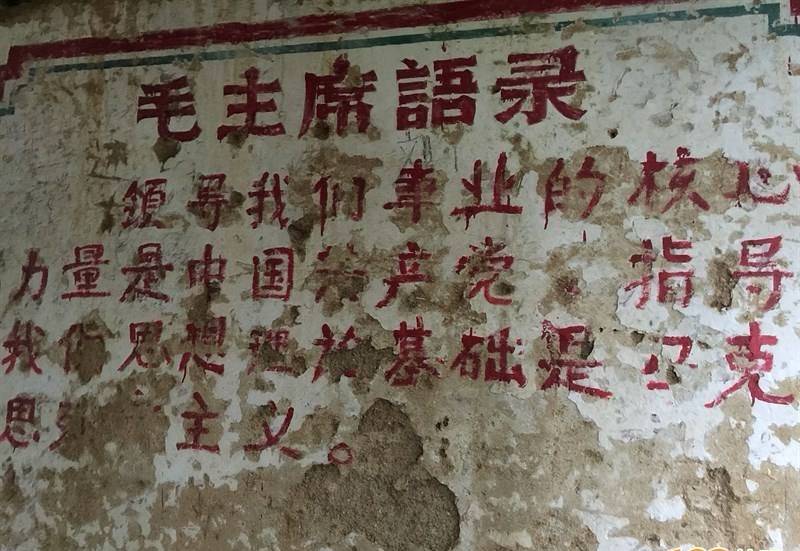 毛主席語录
領导我们事业的核心
力量是中国共产党 指导
我们思想理基础是马克
思列主义。